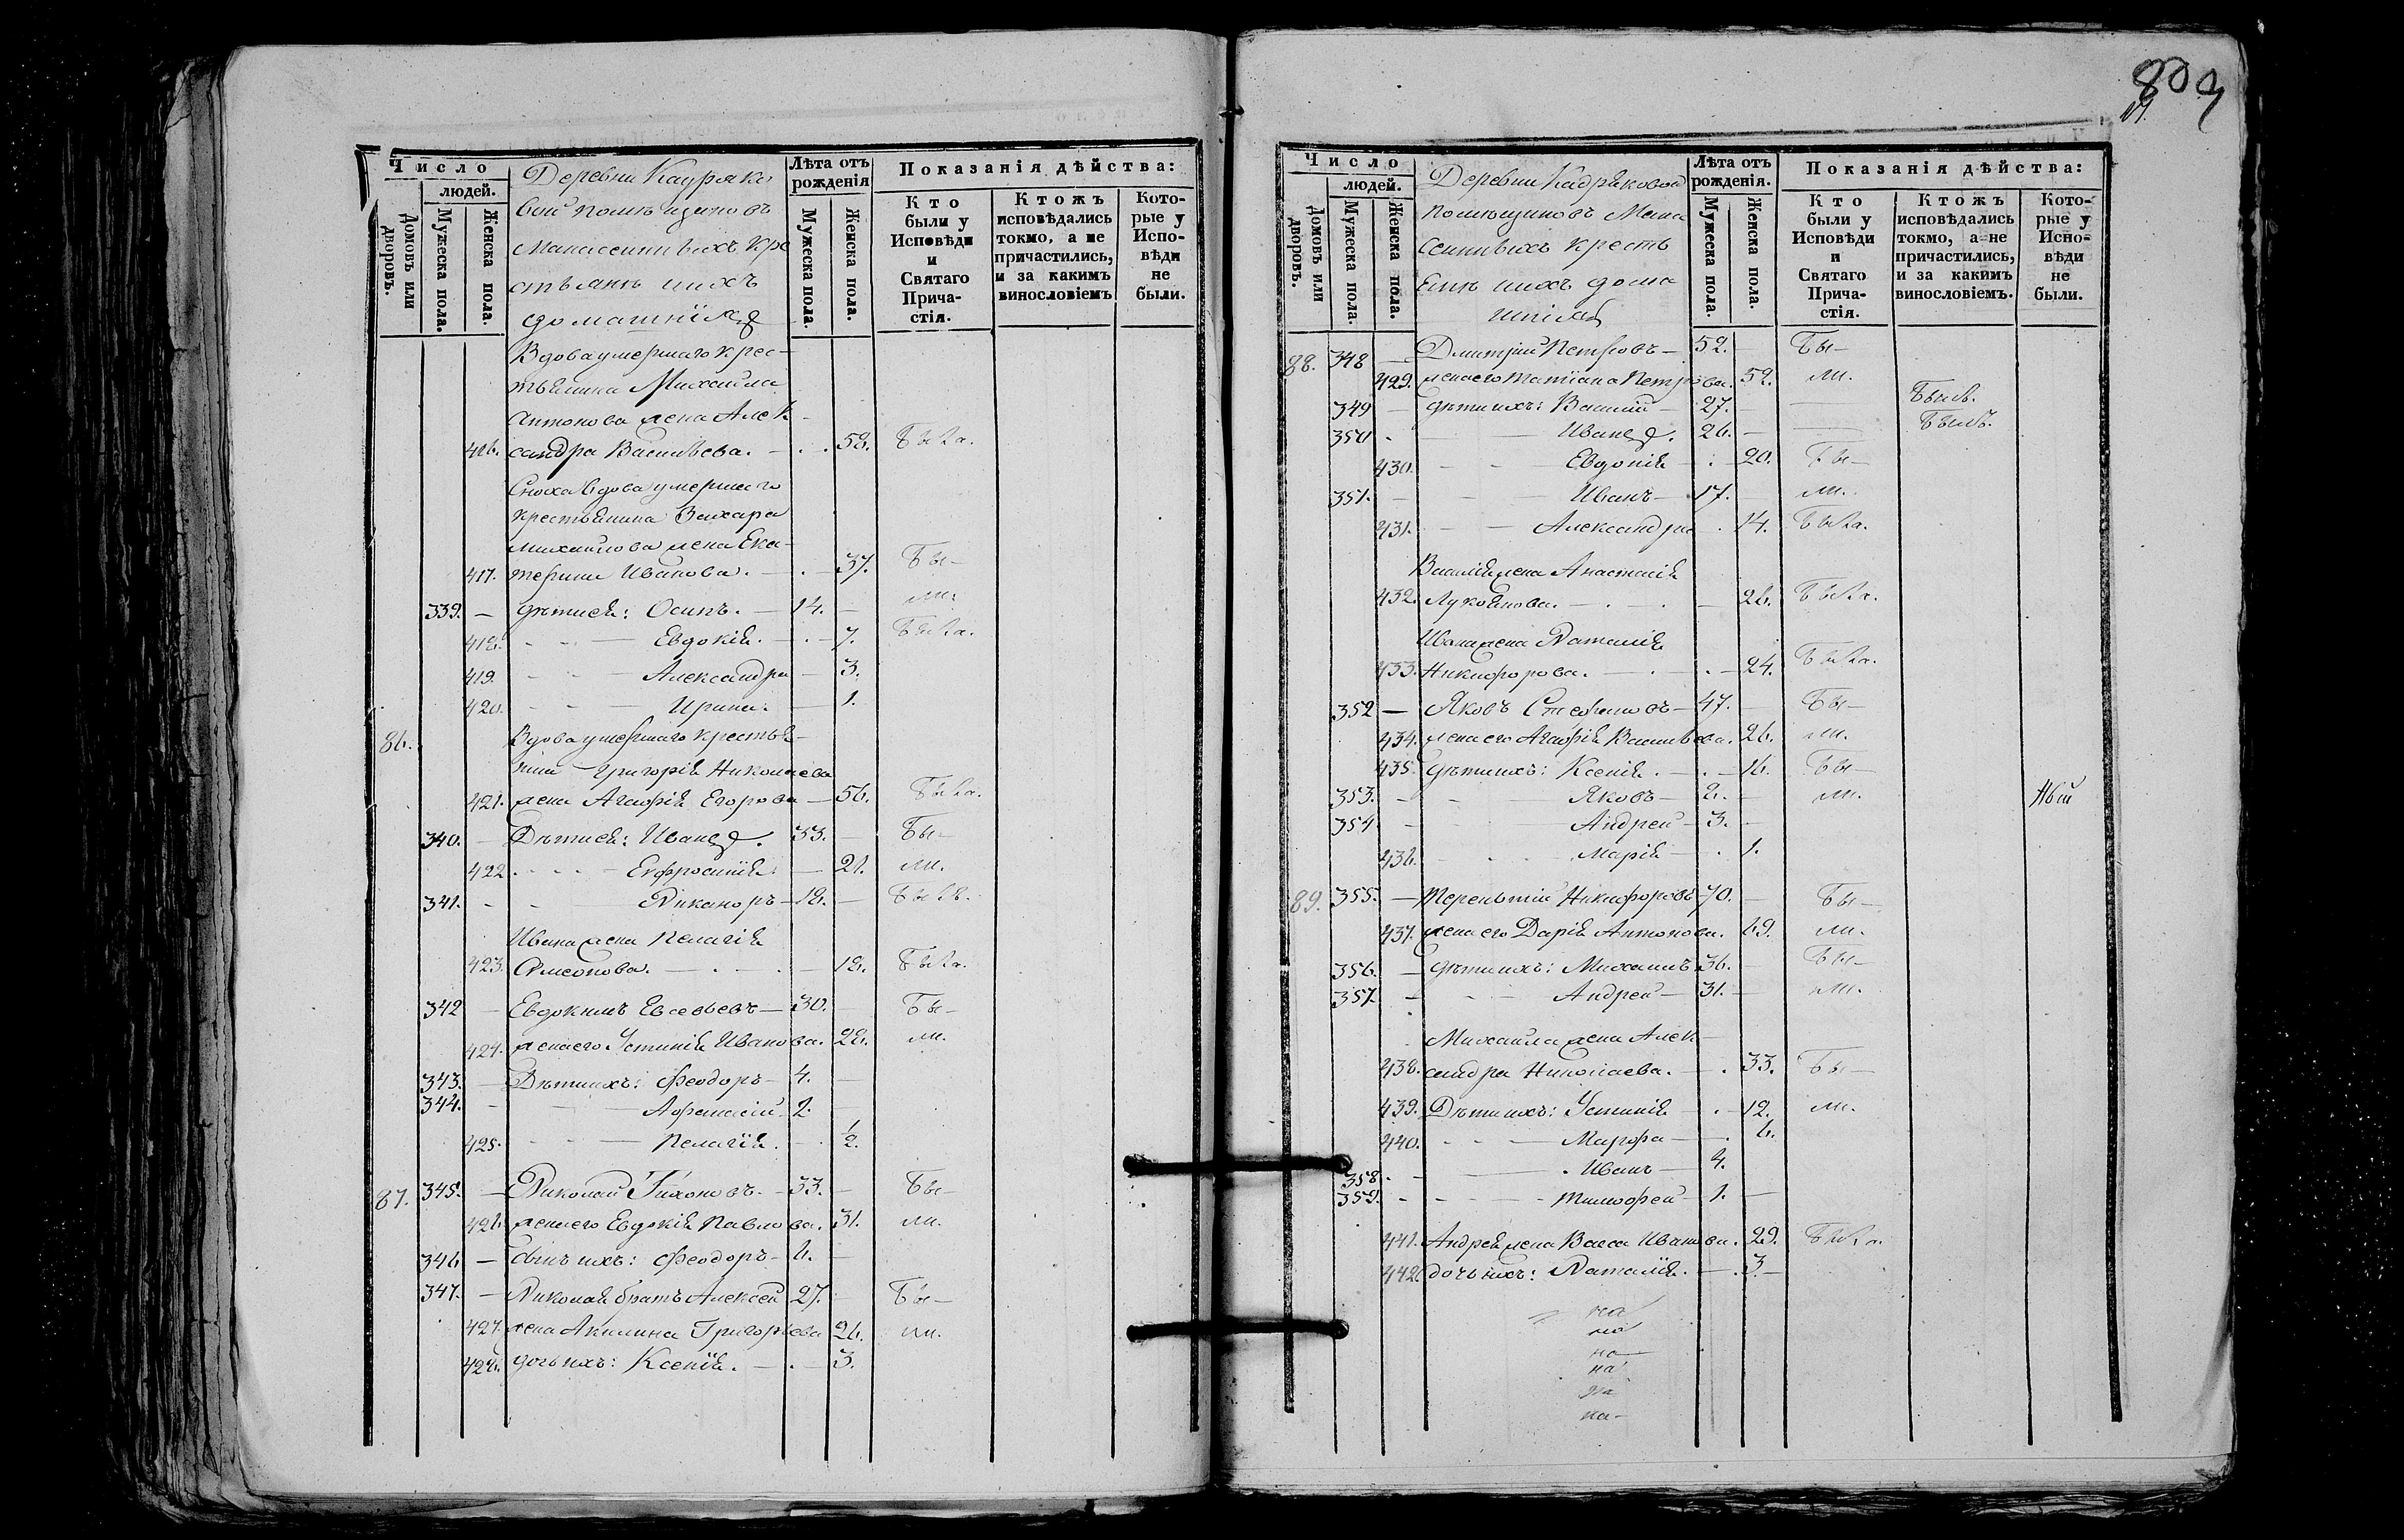 Число
людей.
Домовъ или дворовъ.
Мужеска пола.
Женска пола.
Деревни Кадряко
вой помѣщиковъ
кре
стьянъ ихъ
домашнiихъ
Лѣта отъ рожденiя
Мужеска пола.
Женска пола.
Показанiя дѣйства:
Кто были у Исповѣди и Святаго Прича- стiя.
Ктожъ исповѣдались токмо, а не причастились, и за какимъ винословiемъ
Кото- рые у Испо- вѣди не были.
Вдова умершаго крес-
тьянина Михаила
Антонова жена Алек-
416. сандра Васильева. — 58. была.
Сноха вдова умершаго
крестьянина Захара
Михайлова жена Ека-
417. терина Иванова. — 37. бы-
339. — дѣти ея: Осипъ. — 14. — ли.
418. Евдокiя. — 7. была.
419. Александра — 3.
420. Ирина. — 1.
86. Вдова умершаго крестья-
нина Григорiя Николаева
421. жена Агафiя Егорова — 56. была.
340. — Дѣти ея: Иванъ. 33. — бы-
422. Евфросинiя. — 21. ли.
341. Никаноръ — 18. — былъ.
Ивана жена Пелагiя
423. Симеонова. — 18. была.
342 — Евдокимъ Евсевьевъ — 30. бы-
424. жена его Устинiя Иванова. 28. ли.
343. — Дѣти ихъ: Феодоръ — 4. —
344. Афанасiй. 2. —
425. Пелагiя. — 1/2.
87. 345. — Николай Тихоновъ. — 33. — бы-
426. жена его Евдокiя Павлова. 31. ли.
346 — сынъ ихъ: Феодоръ — 6. —
347. — Николая братъ Алексей 27. бы-
427. жена Акилина Григорьева 26. ли.
428. дочь ихъ: Ксенiя. — 3.
809
Число
людей.
Домовъ или дворовъ.
Мужеска пола.
Женска пола.
Деревни Кадряковой
помѣщиковъ
кресть
янъ ихъ дома
шнiхъ
Лѣта отъ рожденiя.
Мужеска пола.
Женска пола.
Показанiя дѣйства:
Кто были у Исповѣди и Святаго Прича- стiя.
Ктожъ исповѣдались токмо, а не причастились, и за какимъ винословiемъ.
Кото- рые у Испо- вѣди не были.
88. 348 — Дмитрiй Петровъ — 52. — бы-
429. жена его Татiана Петрова. 52. ли.
349 — дѣти ихъ: Василiй — 27. — былъ.
350 Иванъ. 26. — былъ.
430. Евдокiя — 20. бы-
351. — Иванъ — 17. — ли.
431. Александра 14. была.
Василiя жена Анастасiя
432. Лукоянова. — 26. была.
Ивана жена Наталiя
433. Никифорова. — 24. была.
352 — Яковъ Стефановъ — 47. — бы-
434. жена его Агафiя Васильева. 26. ли.
435. дѣти ихъ: Ксенiя. — 16. бы-
353. Яковъ — 8. — ли.
354. Андрей — 3. —
436. Марiя — 1.
89. 355. — Терентiй Никифоровъ 70. — бы-
437. жена его Дарiя Антонова. 69. ли.
356. — дѣти ихъ: Михаилъ 36. — бы-
357. Андрей — 31. — ли.
Михаила жена Алек-
438. сандра Николаева. — 33. бы-
439. Дѣти ихъ: Устинiя — 12. ли.
440. Марфа — 6.
358. Иванъ — 4.
359. Тимофей — 1. —
441. Андрея жена Васса Иванова. 29. была.
442 дочь ихъ: Наталiя. — 3. —
на
на
на
на
на
на-